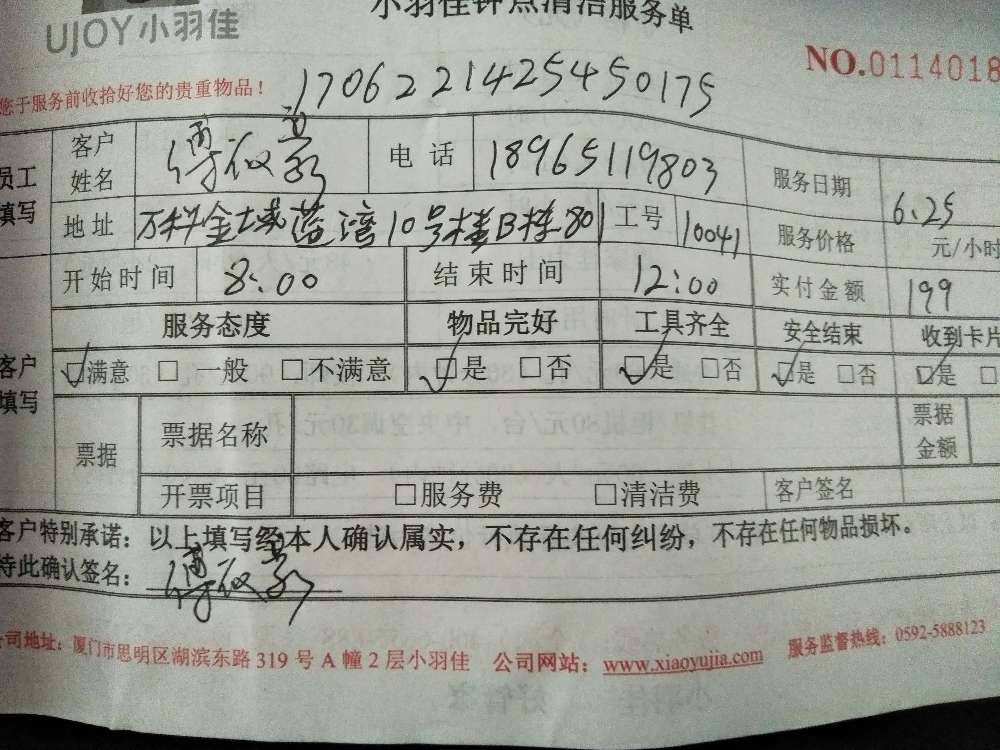 UJOY小羽佳 小羽佳钟点清洁服务单
NO.0114018
您于服务前收拾好您的贵重物品! 170622142545450175
员工填写 客户姓名 电话 18965119803 服务日期 6.25
地址 万科金域蓝湾10号楼B栋801 工号 10041 服务价格 元/小时
开始时间 8:00 结束时间 12:00 实付金额 199
客户填写 服务态度 物品完好 工具齐全 安全结束 收到卡片
☑满意 □一般 □不满意 ☑是 □否 ☑是 □否 ☑是 □否 ☑是 □
票据 票据名称 票据金额
开票项目 □服务费 □清洁费 客户签名
客户特别承诺: 以上填写经本人确认属实,不存在任何纠纷,不存在任何物品损坏。
特此确认签名:
公司地址: 厦门市思明区湖滨东路 319 号 A 幢 2 层小羽佳 公司网站: www.xiaoyujia.com 服务监督热线: 0592-5888123